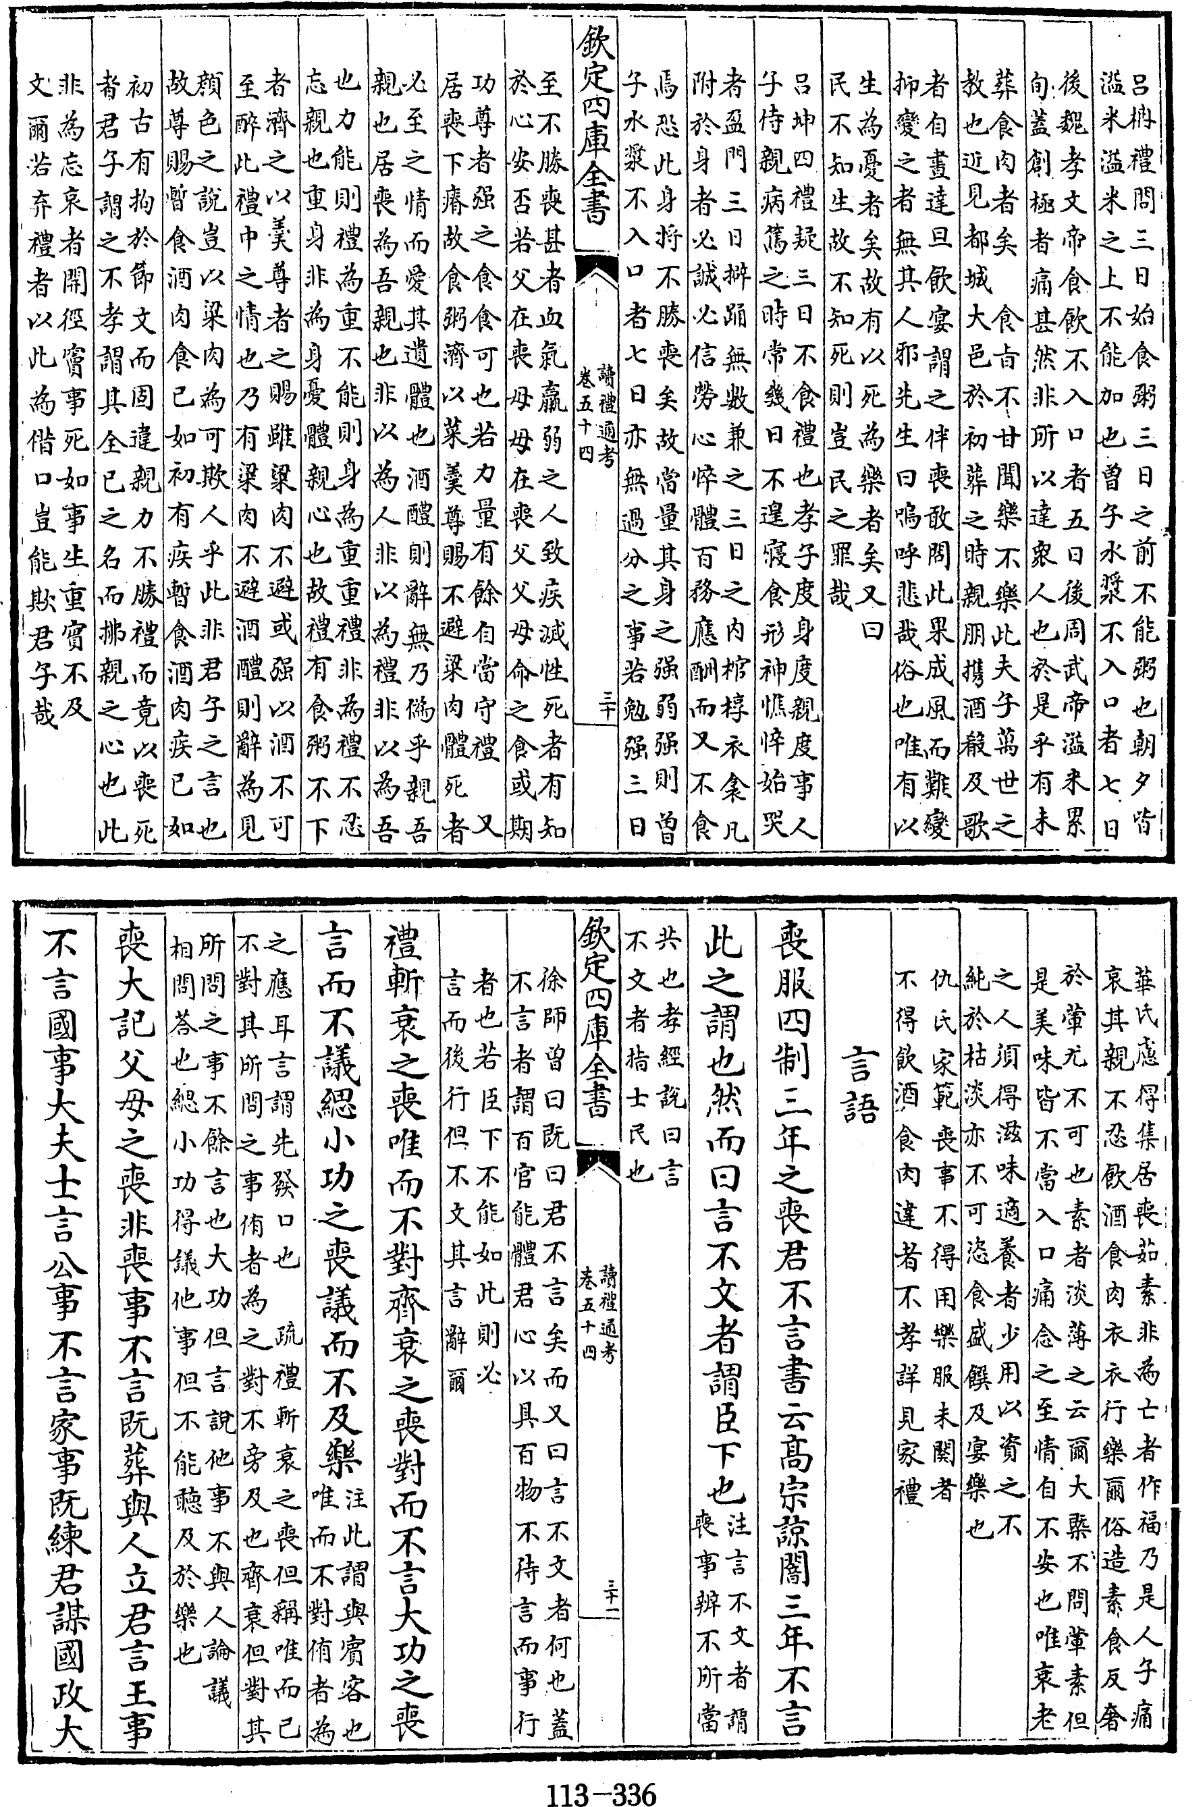 呂柟禮問三日始食粥三日之前不能粥也朝夕皆
溢米溢米之上不能加也曾子水漿不入口者七日
後魏孝文帝食飲不入口者五日後周武帝溢米累
旬蓋創極者痛甚然非所以達衆人也於是乎有未
葬食肉者矣　食旨不甘聞樂不樂此夫子萬世之
教也近見都城大邑於初葬之時親朋攜酒殽及歌
者自晝達旦飲宴謂之伴喪敢問此果成風而難變
抑變之者無其人邪先生曰嗚呼悲哉俗也唯有以
生為憂者矣故有以死為樂者矣又曰
民不知生故不知死則豈民之罪哉
呂坤四禮疑三日不食禮也孝子度身度親度事人
子侍親病篤之時常幾日不遑寢食形神憔悴始哭
者盈門三日擗踊無數兼之三日之内棺椁衣衾凡
附於身者必誠必信勞心悴體百務應酬而又不食
焉恐此身將不勝喪矣故當量其身之强弱强則曾
子水漿不入口者七日亦無過分之事若勉强三日
欽定四庫全書
讀禮通考
卷五十四
三十
至不勝喪甚者血氣羸弱之人致疾滅性死者有知
於心安否若父在喪母母在喪父父母命之食或期
功尊者强之食食可也若力量有餘自當守禮　又
居喪下瘠故食粥濟以菜羹尊賜不避粱肉體死者
必至之情而愛其遺體也酒醴則辭無乃偽乎親吾
親也居喪為吾親也非以為人非以為禮非以為吾
也力能則禮為重不能則身為重重禮非為禮不忍
忘親也重身非為身憂體親心也故禮有食粥不下
者濟之以羹尊者之賜雖粱肉不避或强以酒不可
至醉此禮中之情也乃有粱肉不避酒醴則辭為見
顔色之說豈以粱肉為可欺人乎此非君子之言也
故尊賜暫食酒肉食已如初有疾暫食酒肉疾已如
初古有拘於節文而固違親力不勝禮而竟以喪死
者君子謂之不孝謂其全已之名而挪親之心也此
非為忘哀者開徑竇事死如事生重實不及
文爾若弃禮者以此為借口豈能欺君子哉
華氏慮得集居喪茹素非為亡者作福乃是人子痛
哀其親不忍飲酒食肉衣衣行樂爾俗造素食反奢
於葷尤不可也素者淡薄之云爾大槩不問葷素但
是美味皆不當入口痛念之至情自不安也唯衰老
之人須得滋味適養者少用以資之不
純於枯淡亦不可恣食盛饌及宴樂也
仇氏家範喪事不得用樂服未闋者
不得飲酒食肉違者不孝詳見家禮
言語
喪服四制三年之喪君不言書云髙宗諒闇三年不言
此之謂也然而曰言不文者謂臣下也注言不文者謂
喪事辨不所當
共也孝經說曰言
不文者指士民也
欽定四庫全書
讀禮通考
卷五十四
三十一
徐師曾曰既曰君不言矣而又曰言不文者何也蓋
不言者謂百官能體君心以具百物不待言而事行
者也若臣下不能如此則必
言而後行但不文其言辭爾
禮斬衰之喪唯而不對齊衰之喪對而不言大功之喪
言而不議緦小功之喪議而不及樂注此謂與賓客也
唯而不對侑者為
之應耳言謂先發口也　疏禮斬衰之喪但稱唯而已
不對其所問之事侑者為之對不旁及也齊衰但對其
所問之事不餘言也大功但言說他事不與人論議
相問荅也緦小功得議他事但不能聽及於樂也
喪大記父母之喪非喪事不言既葬與人立君言王事
不言國事大夫士言公事不言家事既練君謀國政大
113-336